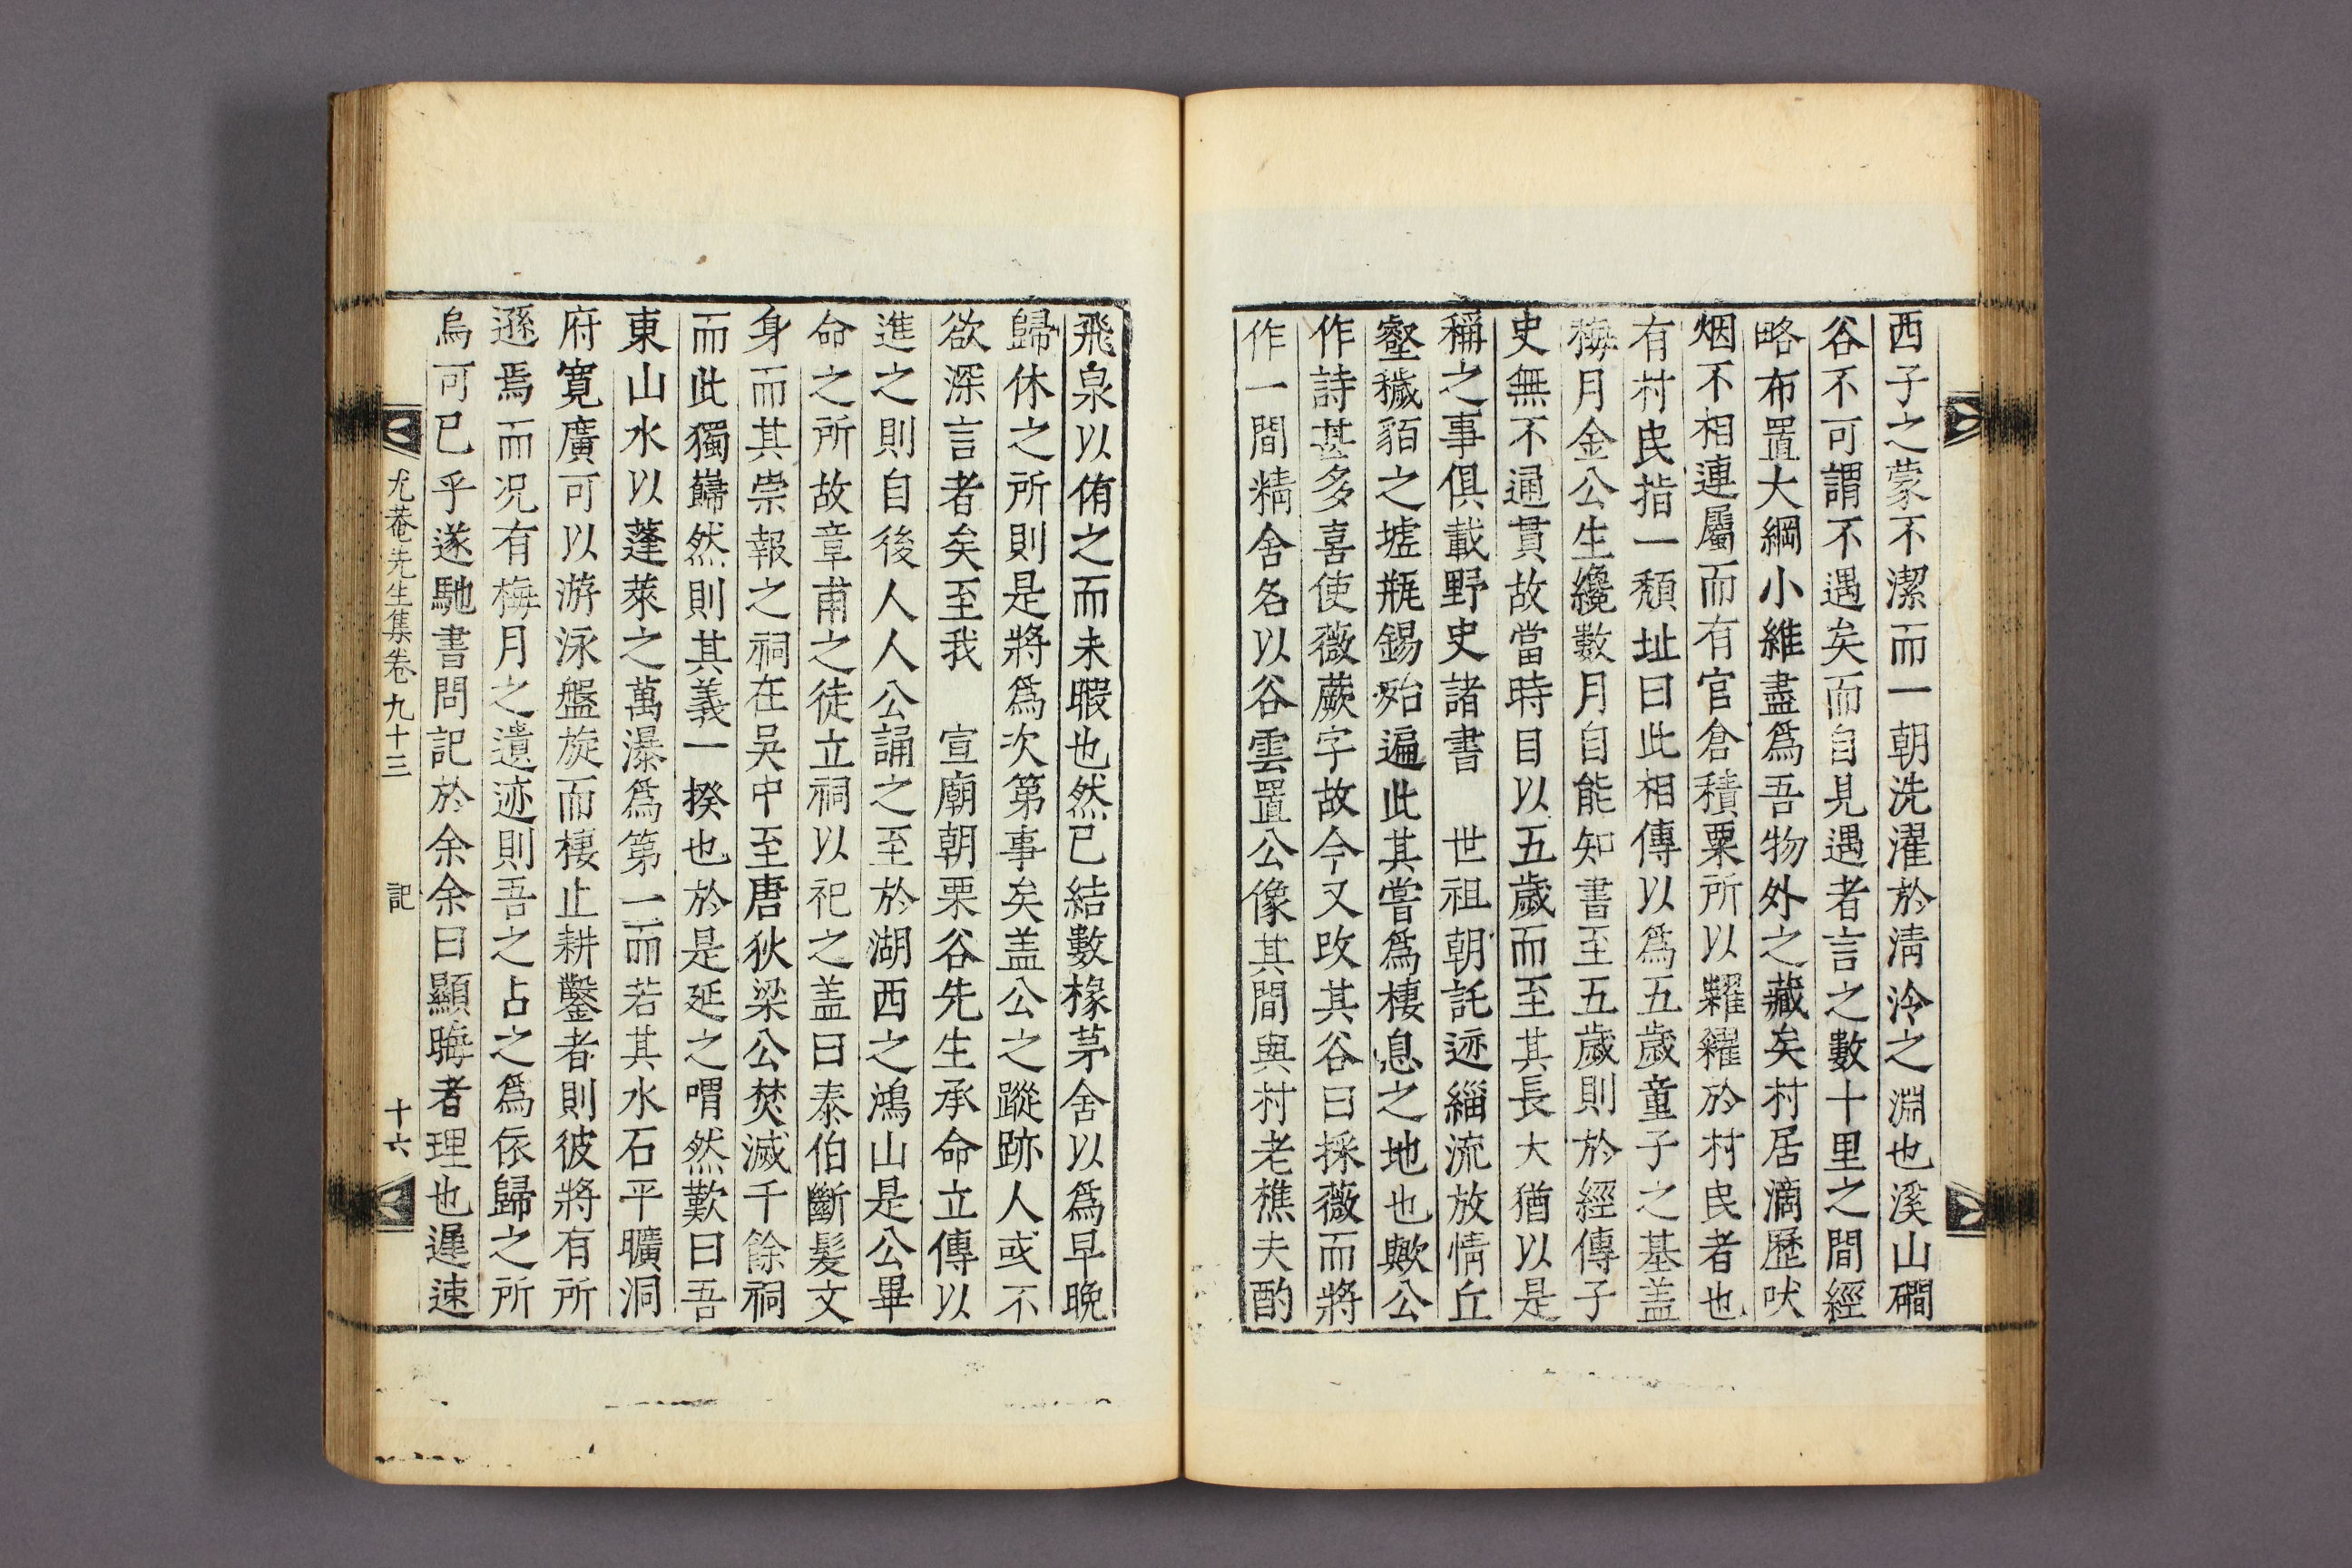 西子之蒙不潔而一朝洗濯於淸泠之淵也溪山磵
谷不可謂不遇矣而自見遇者言之數十里之間經
略布置大綱小維盡爲吾物外之藏矣村居滴歷吠
烟不相連屬而有官倉積粟所以糶糴於村民者也
有村民指一頹址曰此相傳以爲五歲童子之基盖
梅月金公生纔數月自能知書至五歲則於經傳子
史無不通貫故當時目以五歲而至其長大猶以是
稱之事俱載野史諸書 世祖朝託迹緇流放情丘
壑穢貊之墟甁錫殆遍此其嘗爲棲息之地也歟公
作詩甚多喜使薇蕨字故今又改其谷曰採薇而將
作一間精舍名以谷雲置公像其間與村老樵夫酌
飛泉以侑之而未暇也然已結數椽茅舍以爲早晩
歸休之所則是將爲次第事矣盖公之蹤跡人或不
欲深言者矣至我 宣廟朝栗谷先生承命立傳以
進之則自後人人公誦之至於湖西之鴻山是公畢
命之所故章甫之徒立祠以祀之盖曰泰伯斷髮文
身而其崇報之祠在吳中至唐狄梁公焚滅千餘祠
而此獨巋然則其義一揆也於是延之喟然歎曰吾
東山水以蓬萊之萬瀑爲第一而若其水石平曠洞
府寬廣可以游泳盤旋而棲止耕鑿者則彼將有所
遜焉而况有梅月之遺迹則吾之占之爲依歸之所
烏可已乎遂馳書問記於余余曰顯晦者理也遲速
尤菴先生集卷九十三 記 十六